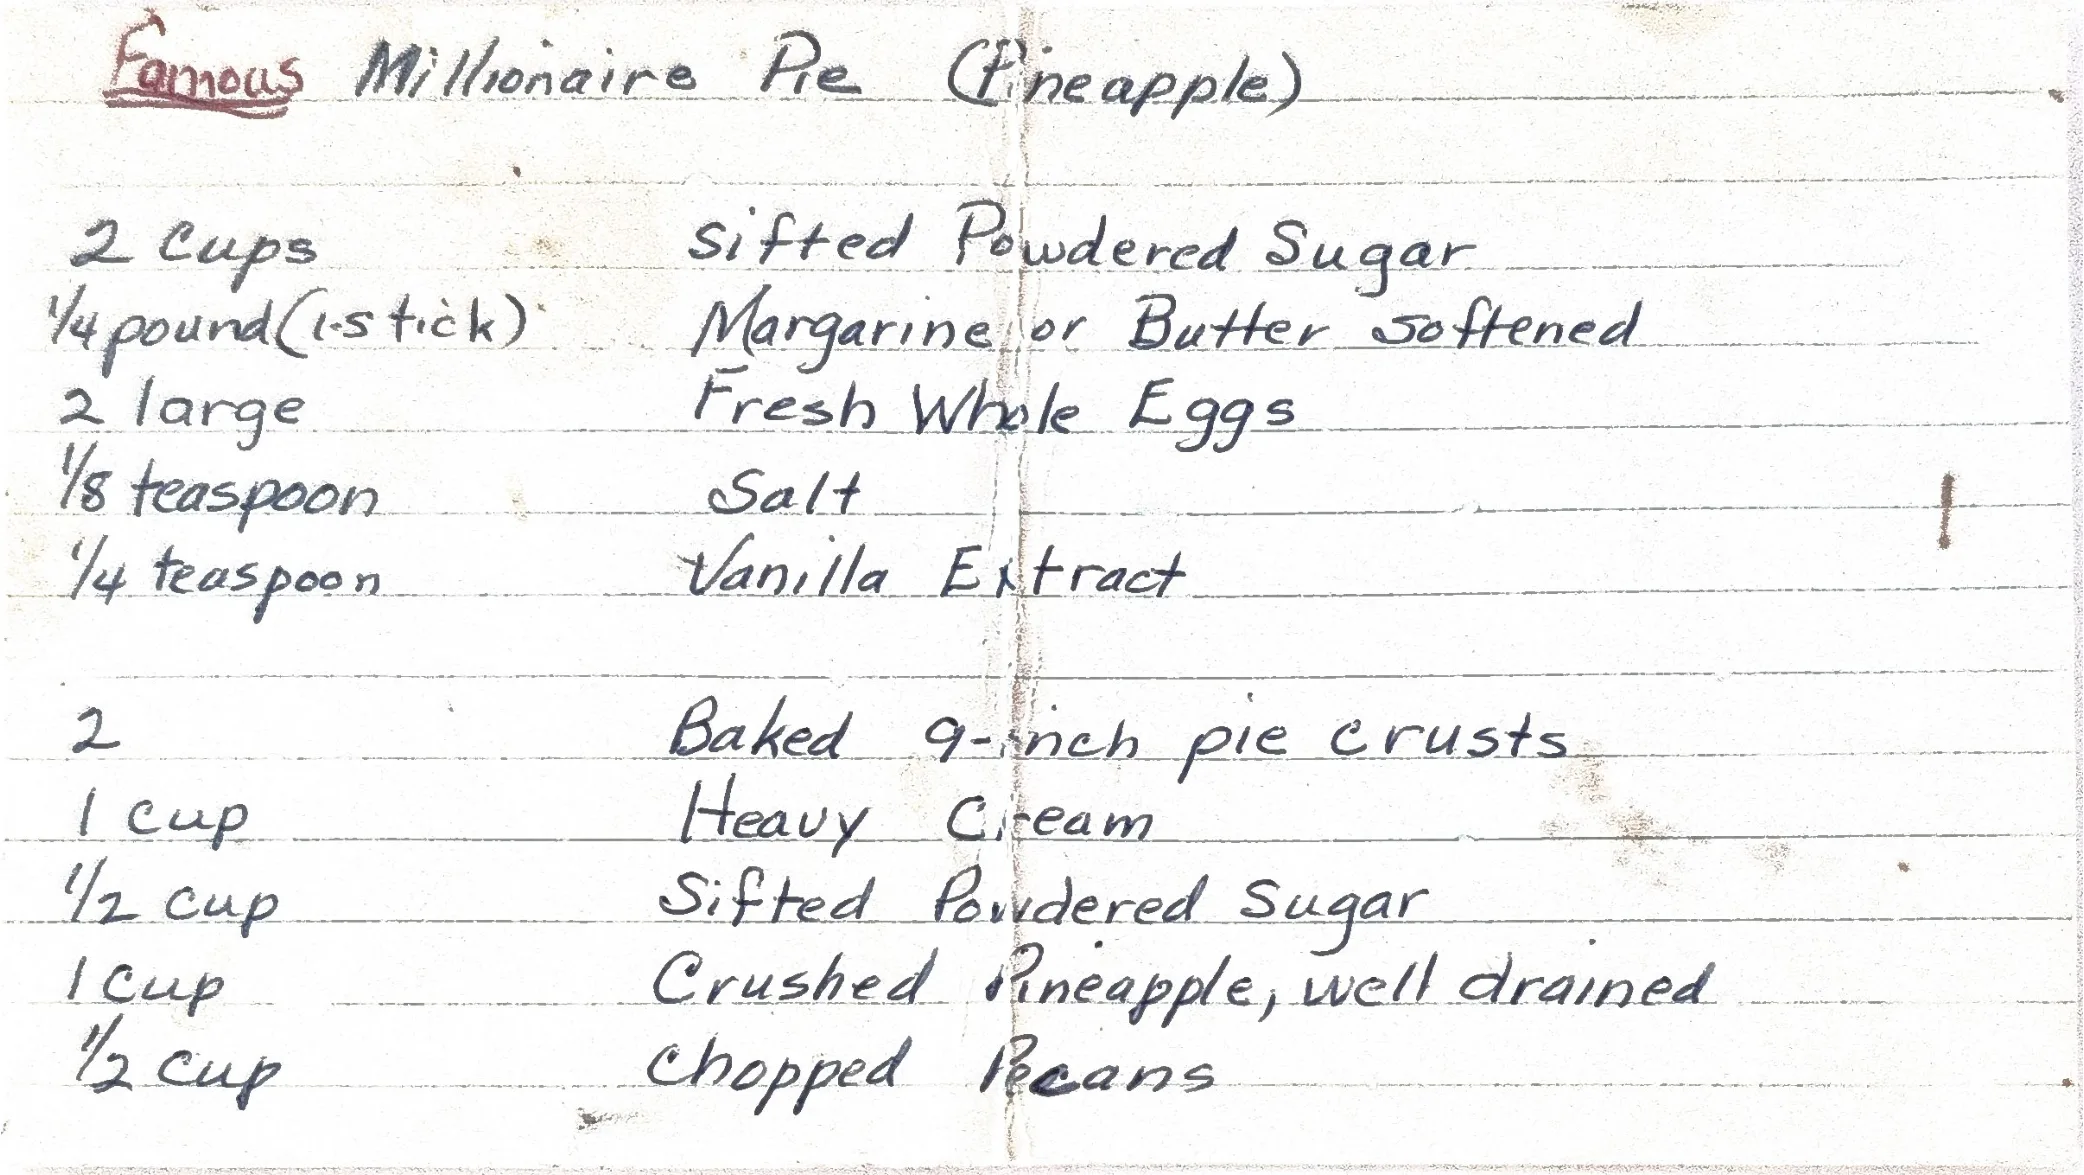 Famous Millionaire Pie (Pineapple)
2 Cups Sifted Powdered Sugar
1/4 pound (1-stick) Margarine or Butter Softened
2 large Fresh Whole Eggs
1/8 teaspoon Salt
1/4 teaspoon Vanilla Extract
2 Baked 9-inch pie crusts
1 cup Heavy Cream
1/2 cup Sifted Powdered Sugar
1 cup Crushed Pineapple, well drained
1/2 cup Chopped Pecans